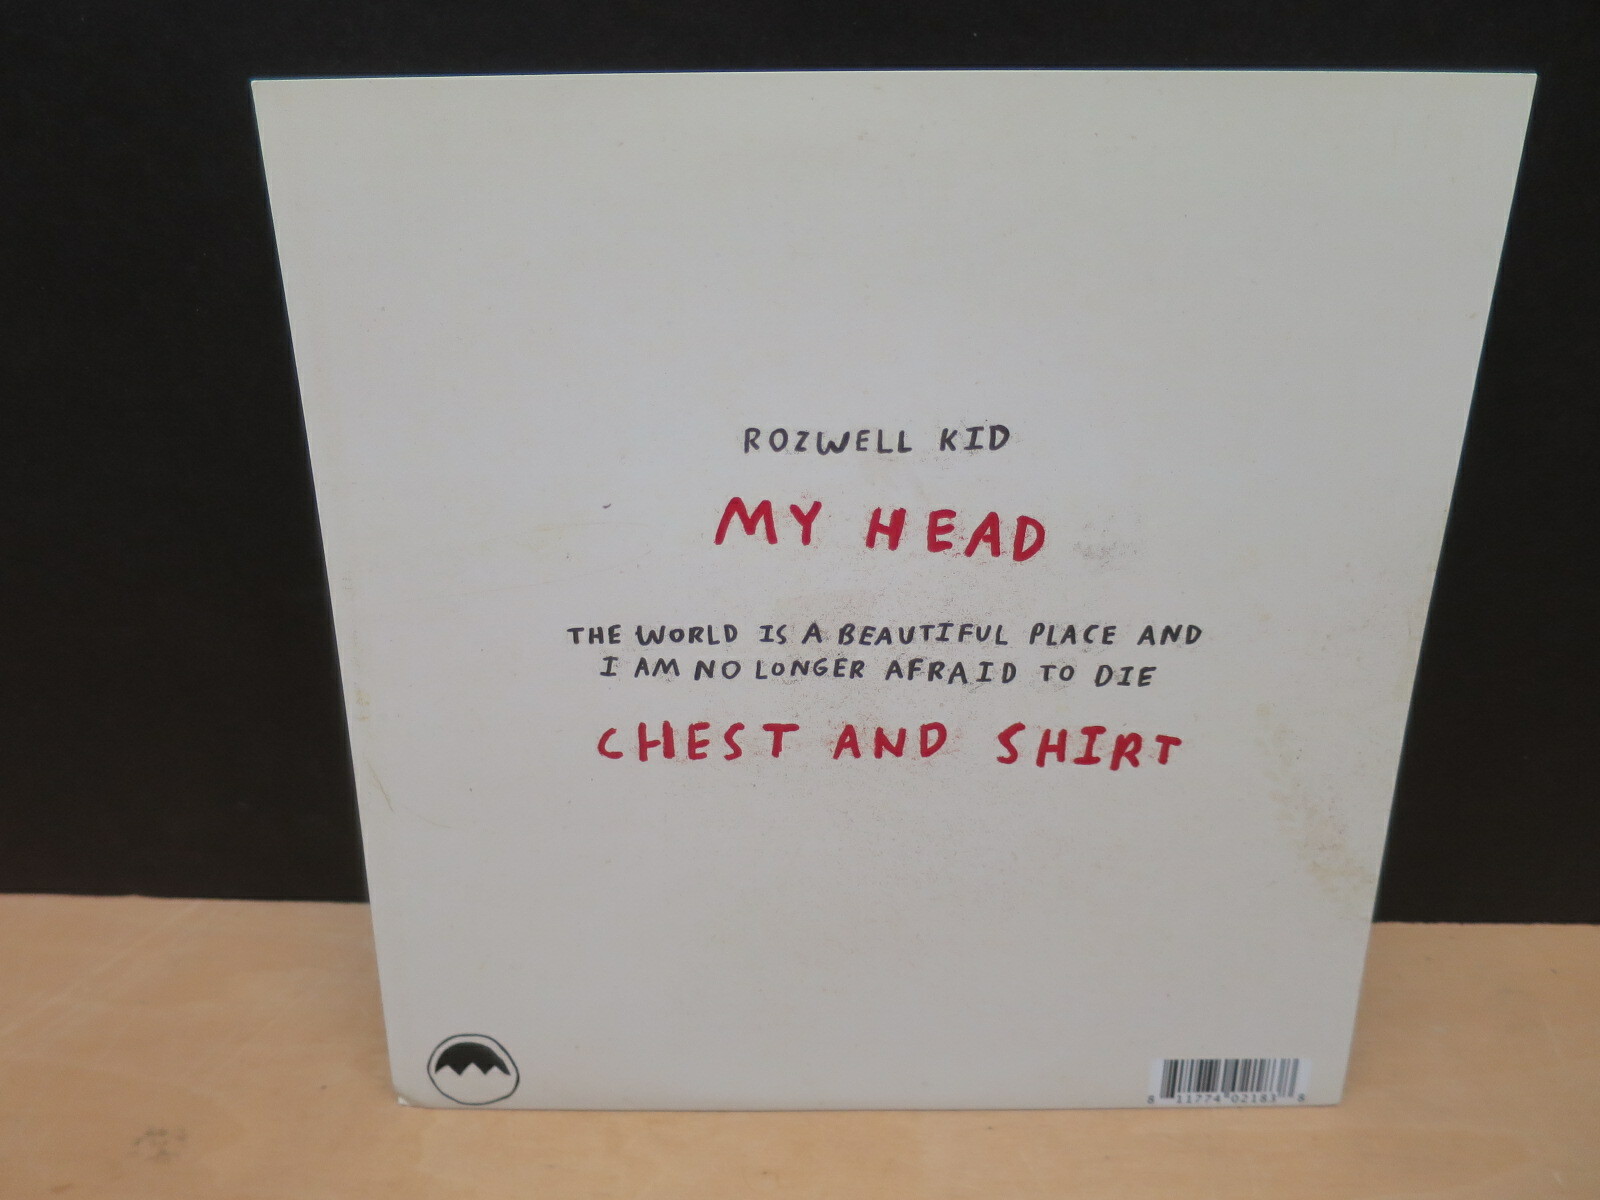 ROZWELL KID
MY HEAD
THE WORLD IS A BEAUTIFUL PLACE AND
I AM NO LONGER AFRAID TO DIE
CHEST AND SHIRT
8 11774 02183 8